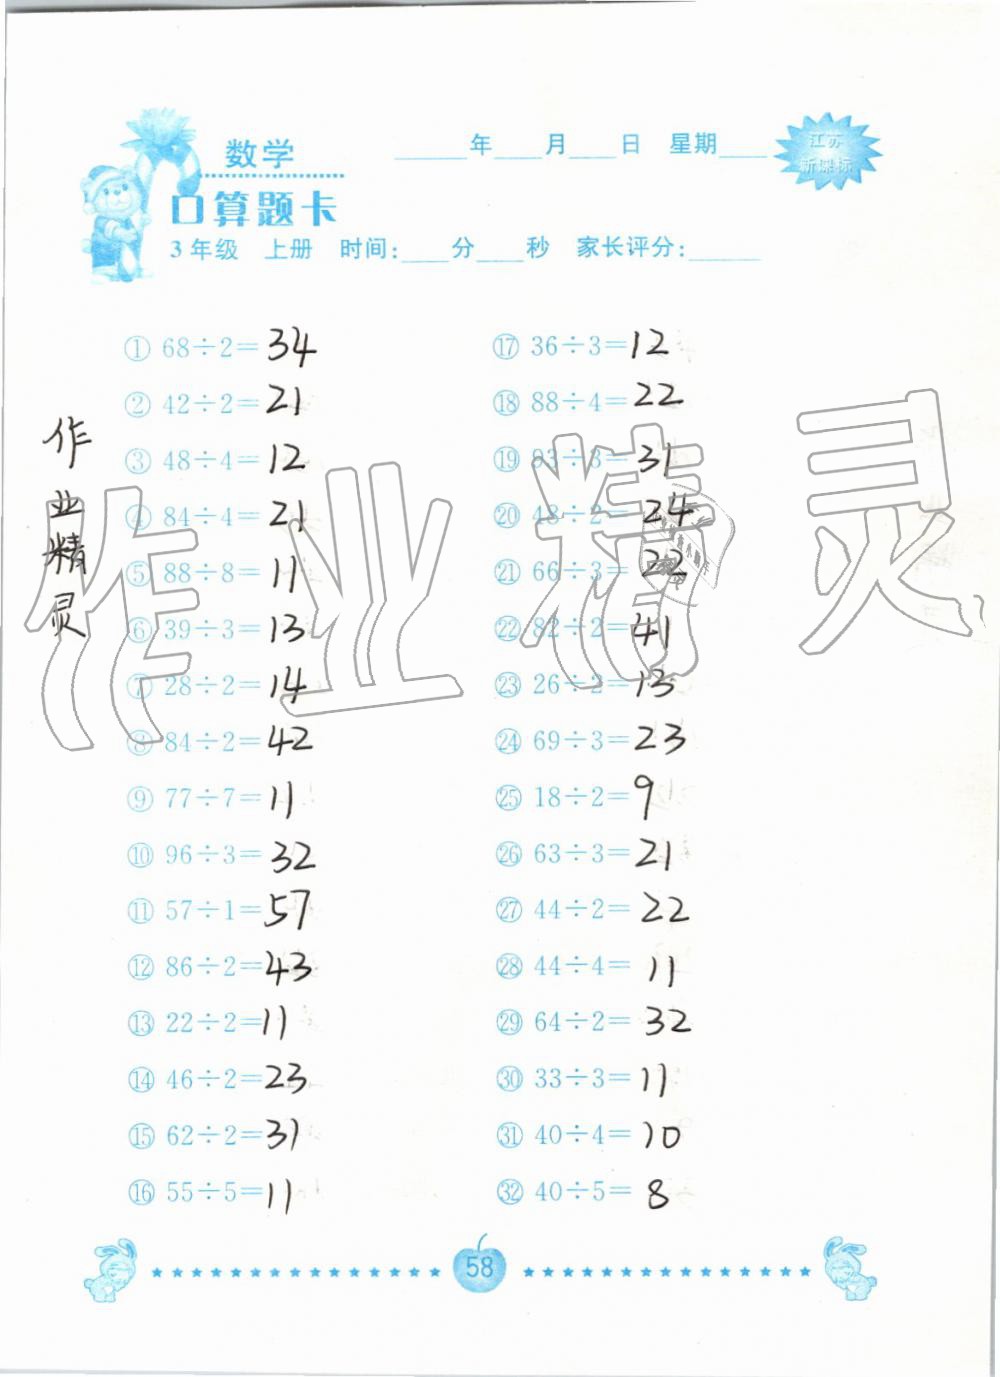 数学
____年____月____日 星期____
江苏
新课标
口算题卡
3年级 上册 时间:____分____秒 家长评分:______
① 68÷2=34
② 42÷2=21
③ 48÷4=12
④ 84÷4=21
⑤ 88÷8=11
⑥ 39÷3=13
⑦ 28÷2=14
⑧ 84÷2=42
⑨ 77÷7=11
⑩ 96÷3=32
⑪ 57÷1=57
⑫ 86÷2=43
⑬ 22÷2=11
⑭ 46÷2=23
⑮ 62÷2=31
⑯ 55÷5=11
⑰ 36÷3=12
⑱ 88÷4=22
⑲ 93÷3=31
⑳ 48÷2=24
㉑ 66÷3=22
㉒ 82÷2=41
㉓ 26÷2=13
㉔ 69÷3=23
㉕ 18÷2=9
㉖ 63÷3=21
㉗ 44÷2=22
㉘ 44÷4=11
㉙ 64÷2=32
㉚ 33÷3=11
㉛ 40÷4=10
㉜ 40÷5=8
作业精灵
作业精灵
58